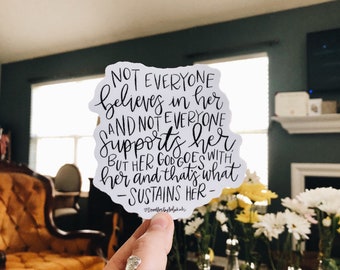 NOT EVERYONE
believes in her
AND NOT EVERYONE
supports her
BUT HER GOD GOES WITH
her and that's what
- SUSTAINS HER -